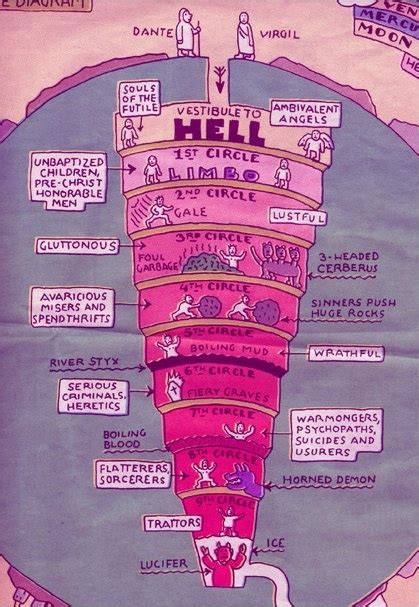 E DIAGRAM
VEN
MERCUR
MOON
HE
DANTE
VIRGIL
SOULS
OF THE
FUTILE
VESTIBULE TO
HELL
AMBIVALENT
ANGELS
1ST CIRCLE
LIMBO
UNBAPTIZED
CHILDREN,
PRE-CHRIST
HONORABLE
MEN
2ND CIRCLE
GALE
LUSTFUL
GLUTTONOUS
3RD CIRCLE
FOUL
GARBAGE
3-HEADED
CERBERUS
AVARICIOUS
MISERS AND
SPENDTHRIFTS
4TH CIRCLE
SINNERS PUSH
HUGE ROCKS
5TH CIRCLE
BOILING MUD
WRATHFUL
RIVER STYX
6TH CIRCLE
FIERY GRAVES
SERIOUS
CRIMINALS,
HERETICS
7TH CIRCLE
WARMONGERS,
PSYCHOPATHS,
SUICIDES AND
USURERS
BOILING
BLOOD
8TH CIRCLE
FLATTERERS,
SORCERERS
HORNED DEMON
9TH CIRCLE
TRAITORS
ICE
LUCIFER